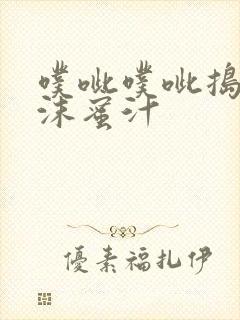 噗呲噗呲搗
沫蜜汁
優素福扎伊